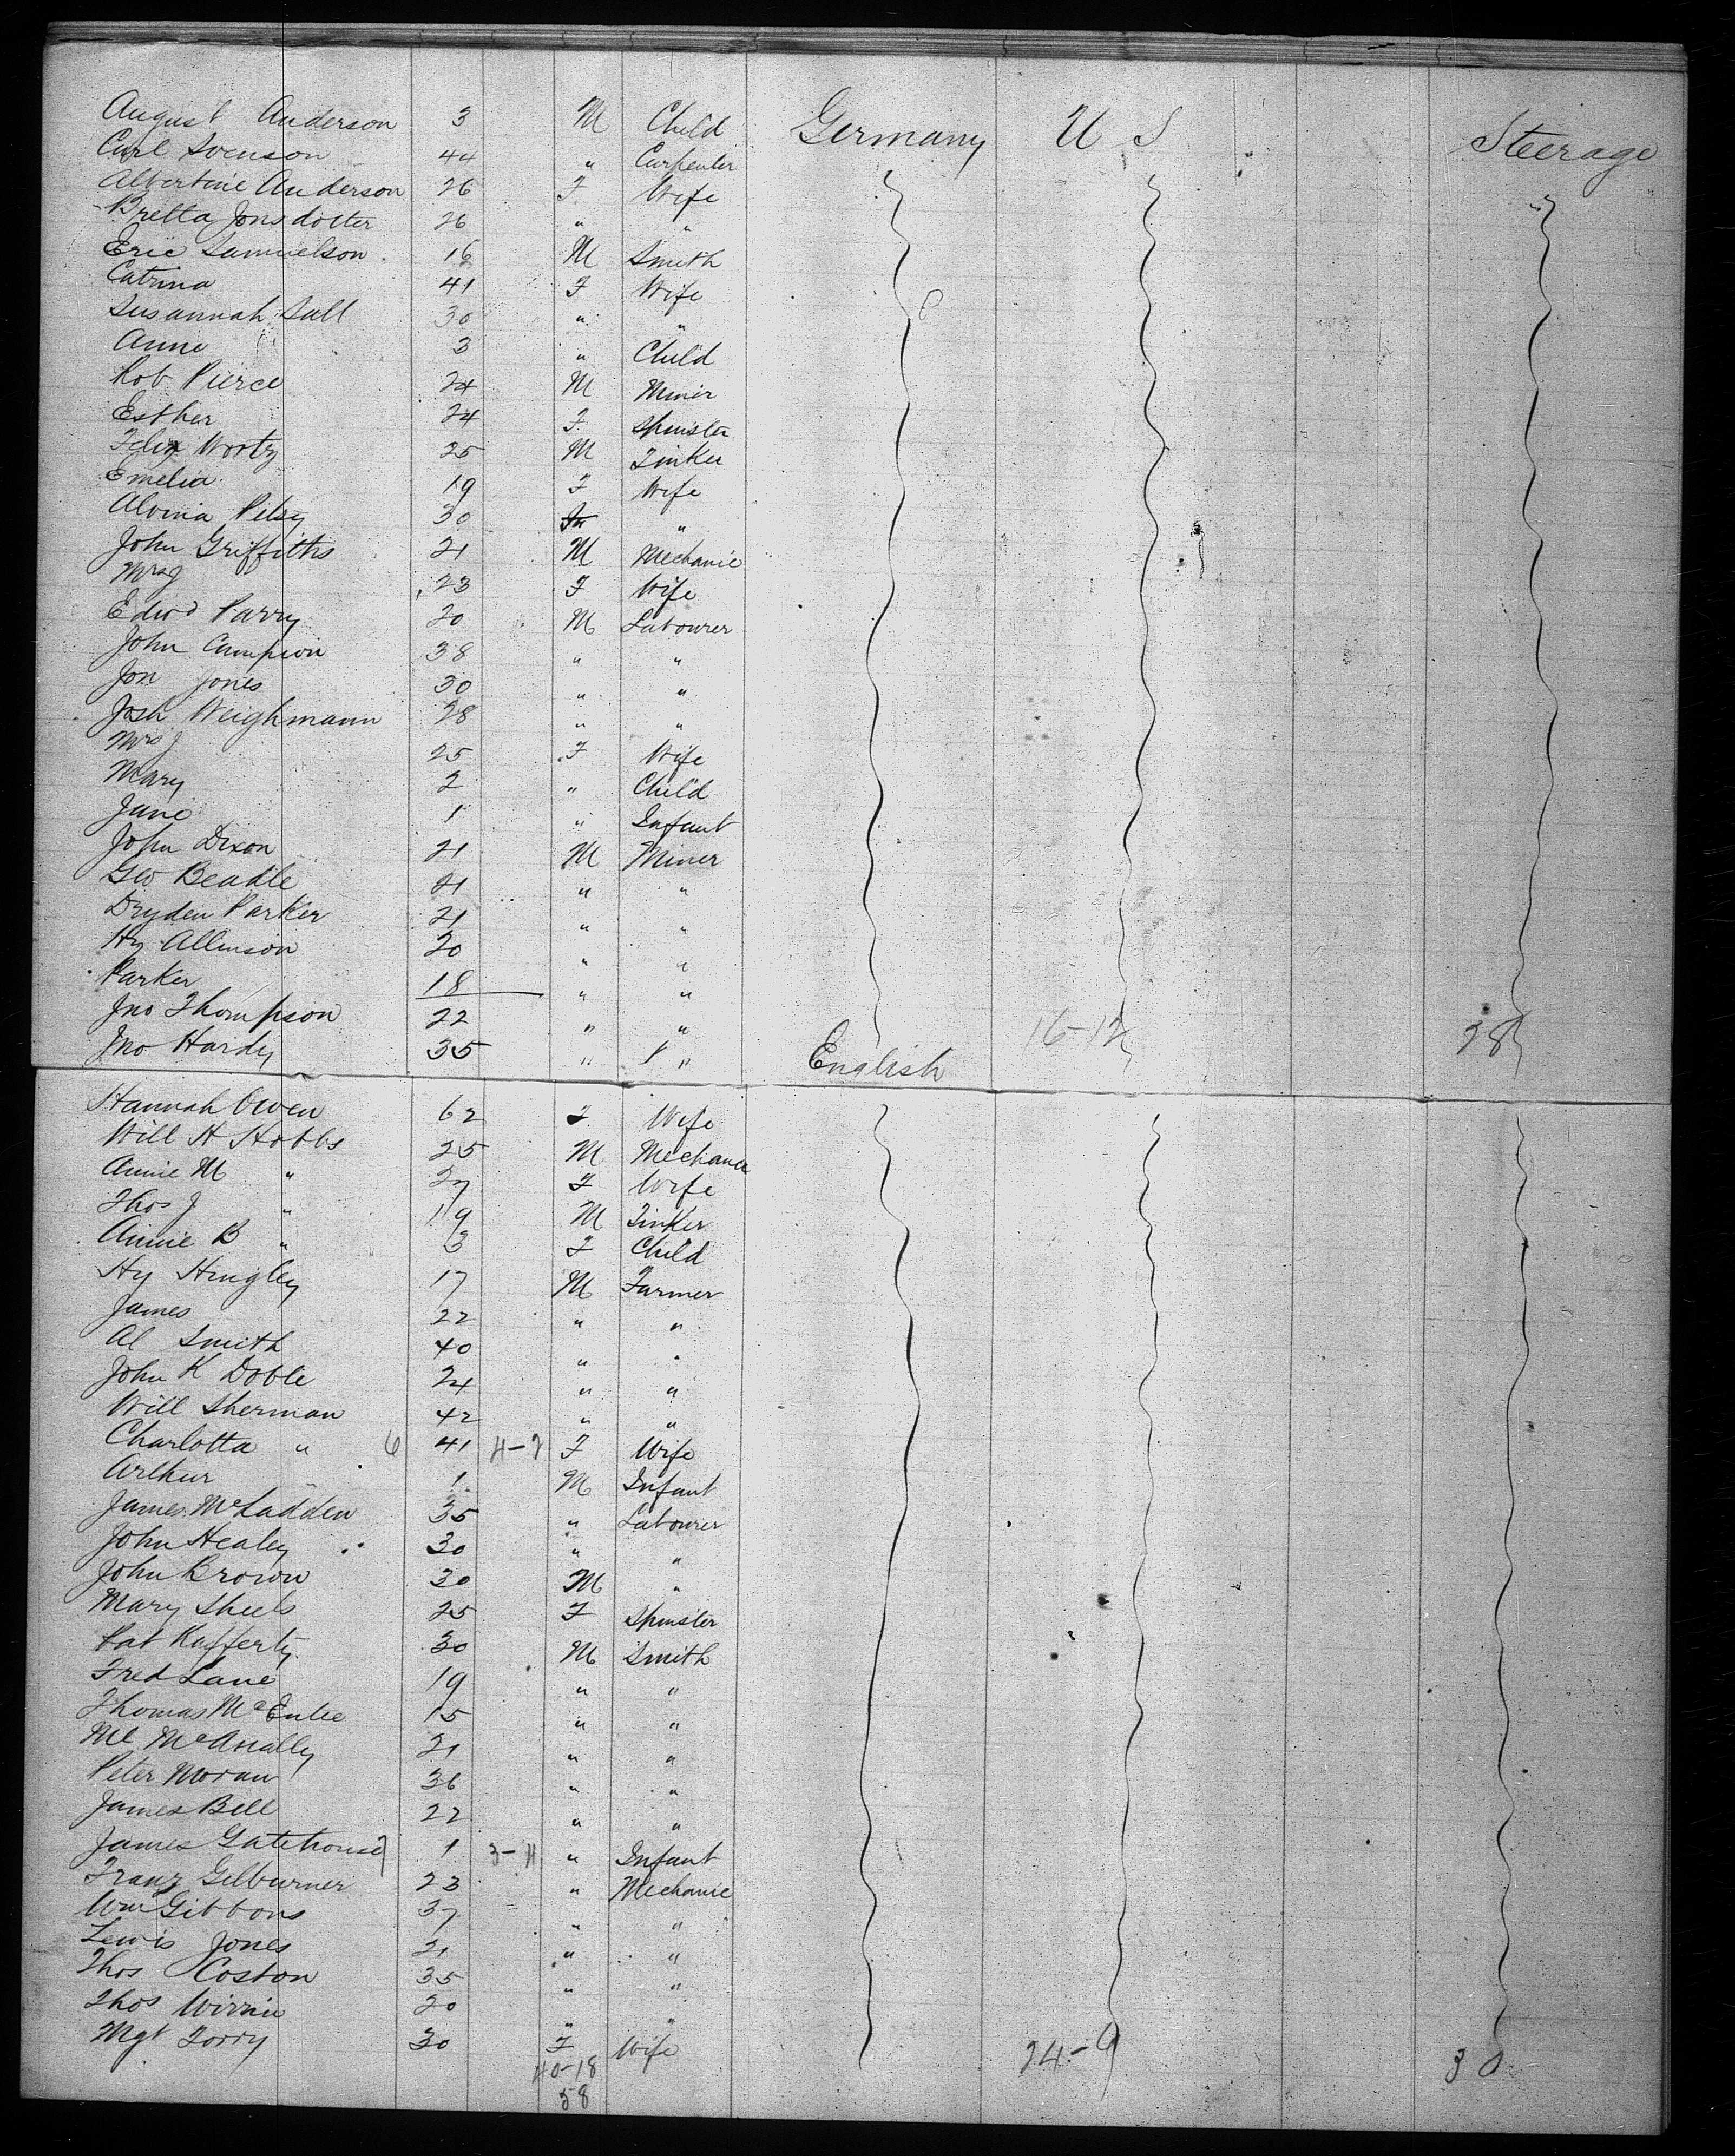 August Anderson 3 M Child Germany U S Steerage
Carl Svenson 44 " Carpenter
Albertine Anderson 26 F Wife
Bretta Jonsdotter 26 " "
Eric Samuelson 16 M Smith
Catrina 41 F Wife
Susannah Sall 30 " "
Anne 3 " Child
Rob Pierce 24 M Miner
Esther 24 F Spinster
Felix Wortz 25 M Tinker
Emelia 19 F Wife
Alvina 30 "
John Griffiths 21 M Mechanic
Mrs J 23 F Wife
Edwd Parry 20 M Labourer
John Campion 38 " "
Jon Jones 30 " "
Josh Weighmann 28 " "
Mrs J 25 F Wife
Mary 2 " Child
Jane 1 " Infant
John Dixon 21 M Miner
Geo Beadle 21 " "
Dryden Parker 21 " "
Hy Allinson 20 " "
Parker 18 " "
Jno Thompson 22 " " 16-12 28
Jno Hardy 35 " " English
Hannah Owen 62 F Wife
Will H Hobbs 25 M Mechanic
Annie M " 27 F Wife
Thos J " 19 M Tinker
Annie B " 3 F Child
Hy Hingley 17 M Farmer
James 22 " "
Al Smith 40 " "
John K Doble 24 " "
Will Sherman 42 " "
Charlotta " 6 41 4-2 F Wife
Arthur 1 M Infant
James McLadden 35 " Labourer
John Healey 30 " "
John Brown 30 M "
Mary Sheels 25 F Spinster
Pat Rafferty 30 M Smith
Fred Lane 19 " "
Thomas McEntee 15 " "
Ml McAnally 21 " "
Peter Moran 36 " "
James Bell 22 " "
James Gatehouse 1 3-4 " Infant
Franz Gelburner 23 " Mechanic
Wm Gibbons 37 " "
Lewis Jones 21 " "
Thos Coston 35 " "
Thos 20 " "
Mgt Torry 30 F Wife 24-9 30
40-18
58